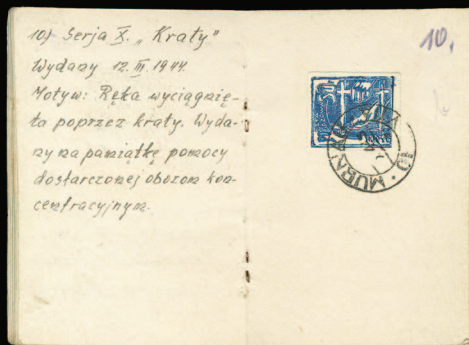 10) Serja X. „Kraty"
Wydany 12. III. 1944.
Motyw: Ręka wyciągnię-
ta poprzez kraty. Wyda-
ny na pamiątkę pomocy
dostarczonej obozom kon-
centracyjnym.
10.
MURNAU